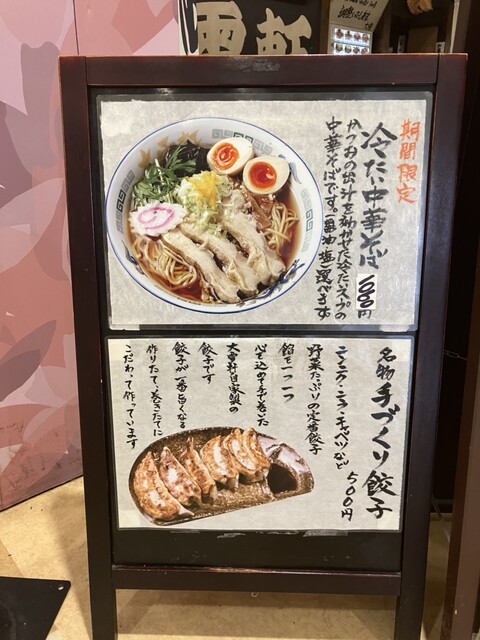 雷軒
期間限定
冷たい中華そば 1000円
かつおの出汁を効かせた冷たいスープの
中華そばです。醤油・塩選べます。
名物 手づくり餃子
500円
にんにく・ニラ・キャベツなど
野菜たっぷりの定番餃子
餡を一つ一つ
心を込めて手で巻いた
大雷軒自家製の
餃子です
餃子が一番旨くなる
作りたて・巻きたてに
こだわって作っています